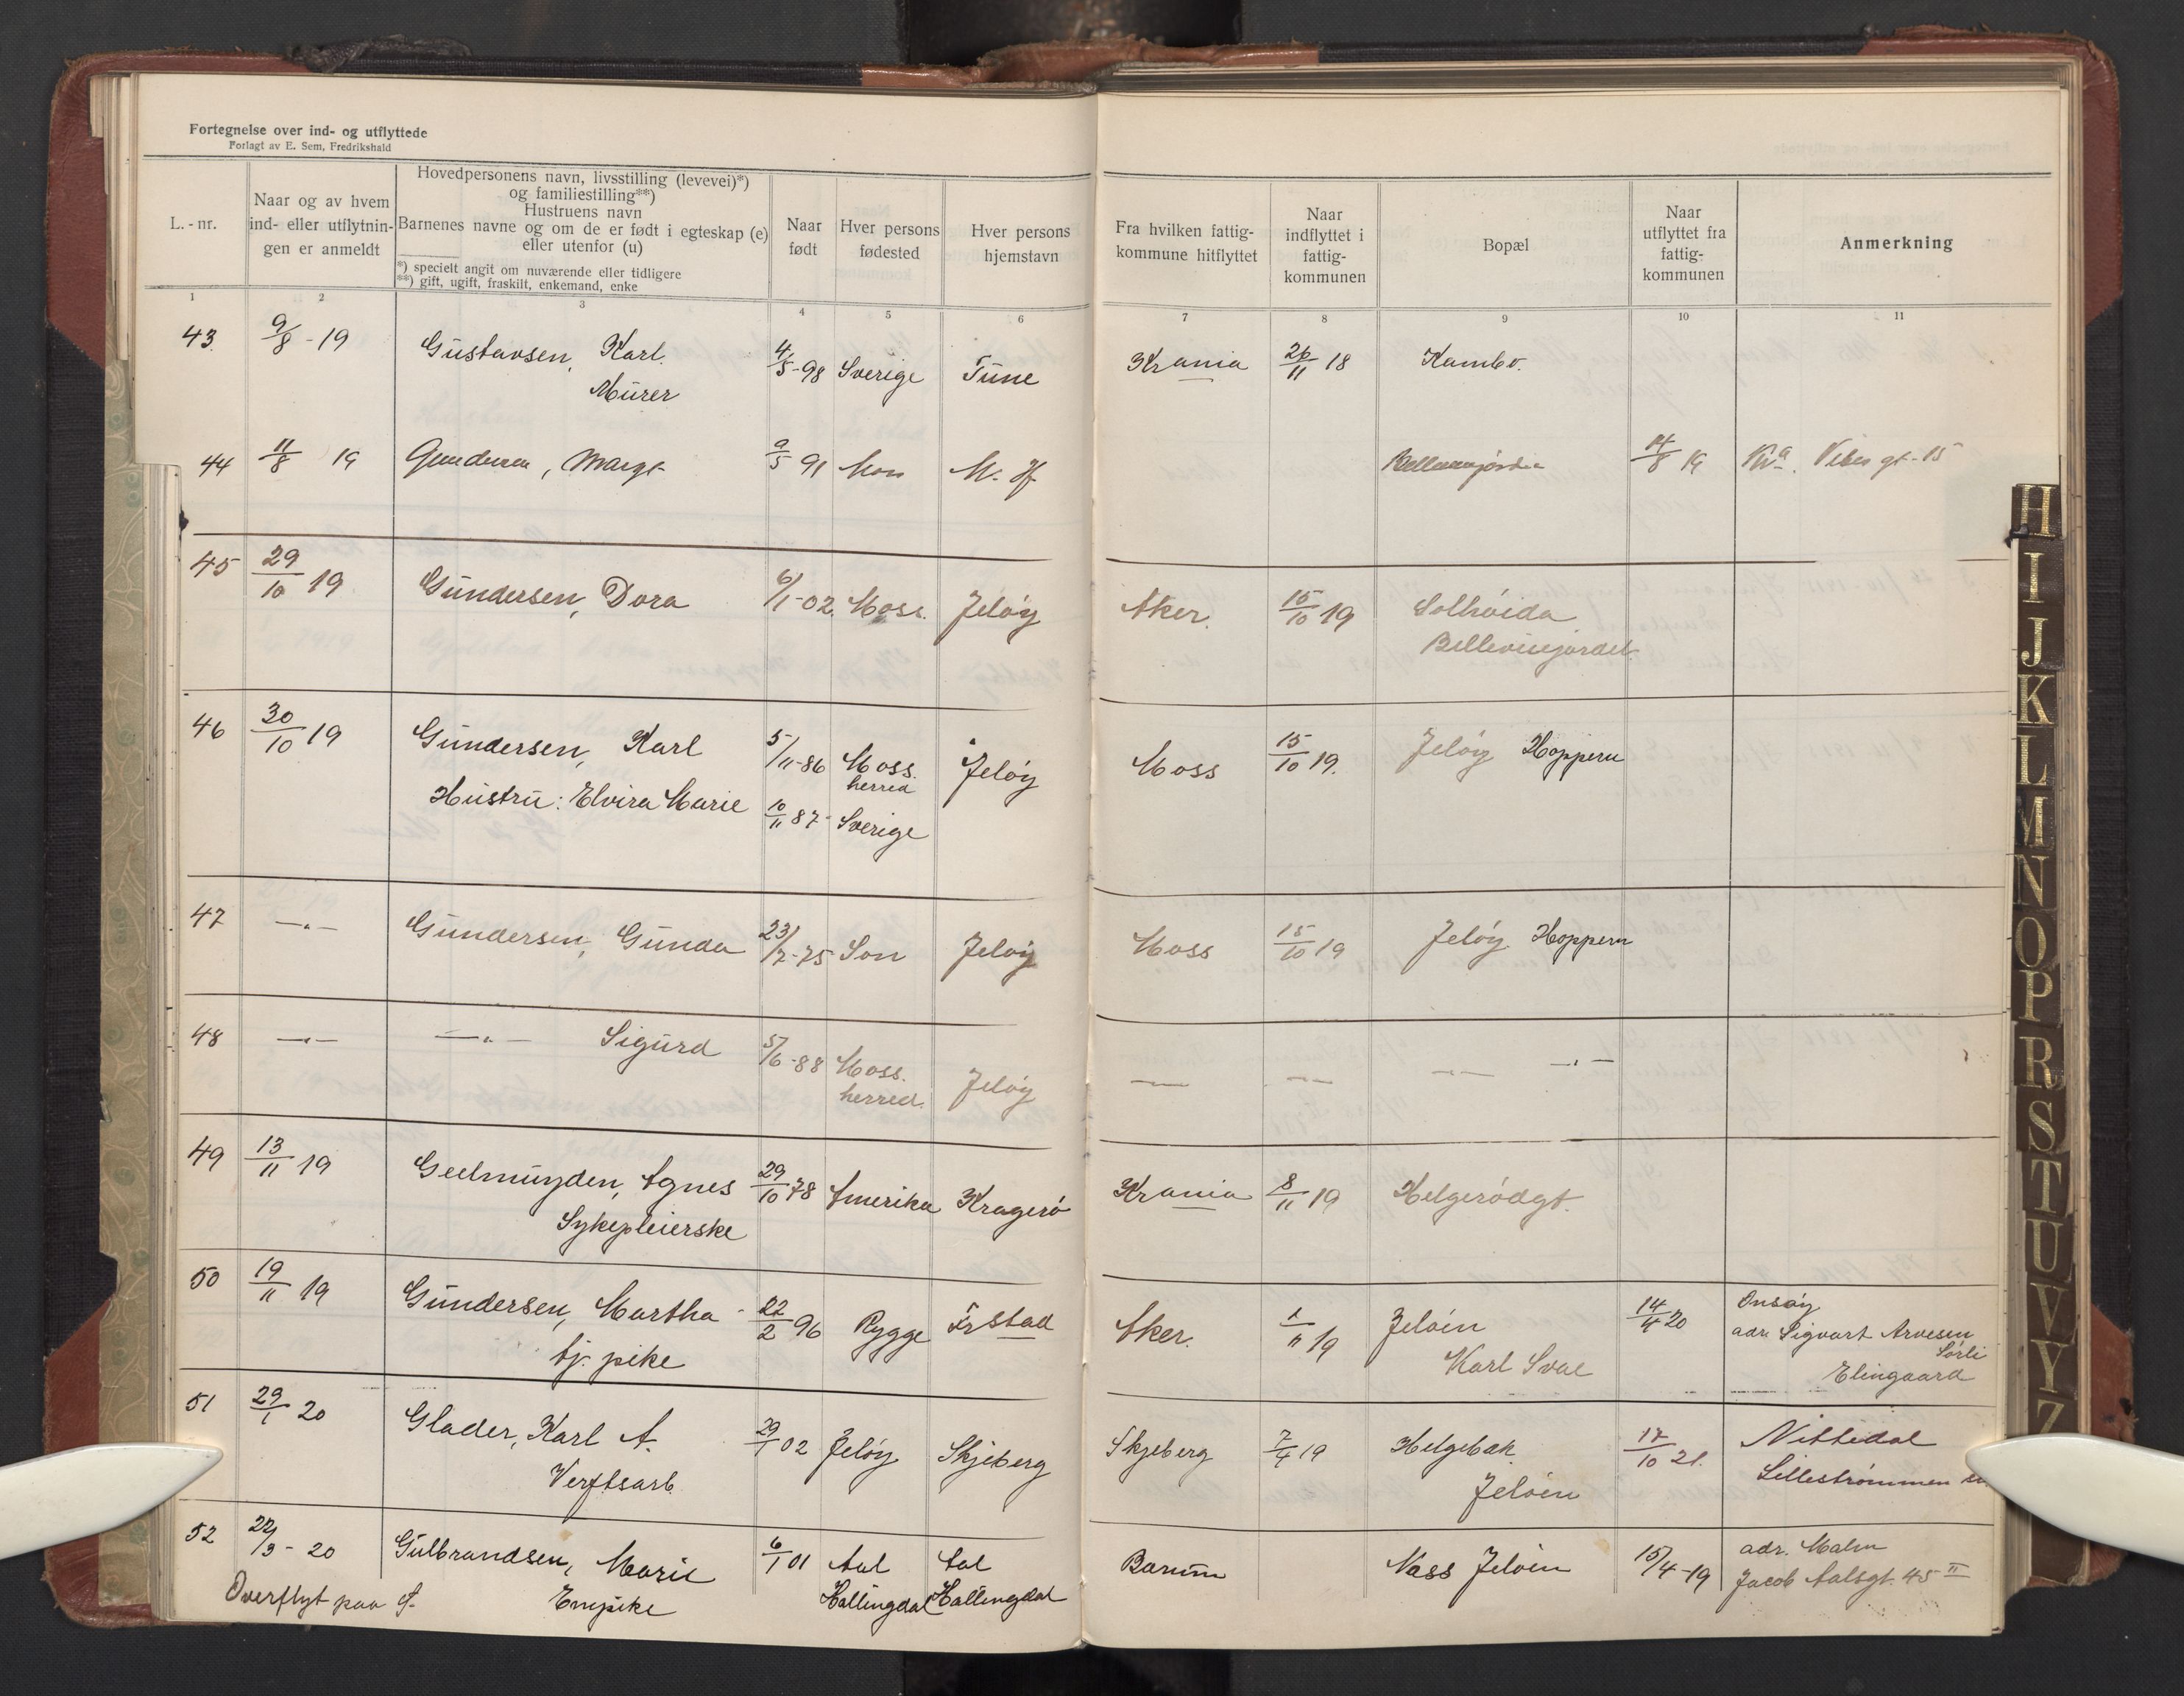 Fortegnelse over ind- og utflyttede
Forlagt av E. Sem, Fredrikshald
L.-nr.
Naar og av hvem ind- eller utflytnin-gen er anmeldt
Hovedpersonens navn, livsstilling (levevei)*)
og familiestilling**)
Hustruens navn
Barnenes navne og om de er født i egteskap (e)
eller utenfor (u)
*) specielt angit om nuværende eller tidligere
**) gift, ugift, fraskilt, enkemand, enke
Naar født
Hver persons fødested
Hver persons hjemstavn
Fra hvilken fattig-kommune hitflyttet
Naar indflyttet i fattig-kommunen
Bopæl
Naar utflyttet fra fattig-kommunen
Anmerkning
1 2 3 4 5 6 7 8 9 10 11
43 9/8-19 Gustavsen, Karl. 4/5-98 Sverige Tune Krania 26/11 18 Kambo.
Murer
44 11/8 19 Gundersen, Margt 9/5 91 Mon M. Hf. 14/8 19 Kr.a. Vibes gt. 15
45 29/10 19 Gundersen, Dora 6/1-02. Moss. Jeløy Aker. 15/10 19 Solhøida
Bellevuejordet
46 30/10 19 Gundersen, Karl 5/11-86 Moss. herred Jeløy Moss 15/10 19. Jeløy Hoppern
Hustru: Elvira Marie 10/11 87- Sverige
47 —"— Gundersen, Gunda 23/7-75 Son Jeløy Moss 15/10 19 Jeløy Hoppern
48 —"— —"— Sigurd 5/6-88 Moss. herred. Jeløy — — — —"—
49 13/11 19 Geelmuyden, Agnes 29/10 78 Amerika Kragerø Krania 8/11 19 Helgerødgt.
Sykepleierske
50 19/11 19 Gundersen, Martha 22/2 96 Rygge Frstad Aker. 1/11 19 Jeløen 14/4 20 Onsøy
tj. pike Karl Svae adr. Sigvart Arvesen
Sørli
Elingaard
51 29/1 20 Glader, Karl A. 29/1 02 Jeløy Skjeberg Skjeberg 7/4 19 Helgebak. 17/10 21. Nittedal
Verftsarb. Jeløen Lillestrømmen
52 22/3-20 Gulbrandsen, Marie 6/1 01 Aal Aal Barum Nass Jeløen 15/4-19 adr. Malm
Overflyt paa S. Enepike Hallingdal Hallingdal Jacob Aalsgt. 45 II
H
I
J
K
L
M
N
O
P
R
S
T
U
V
Y
Z